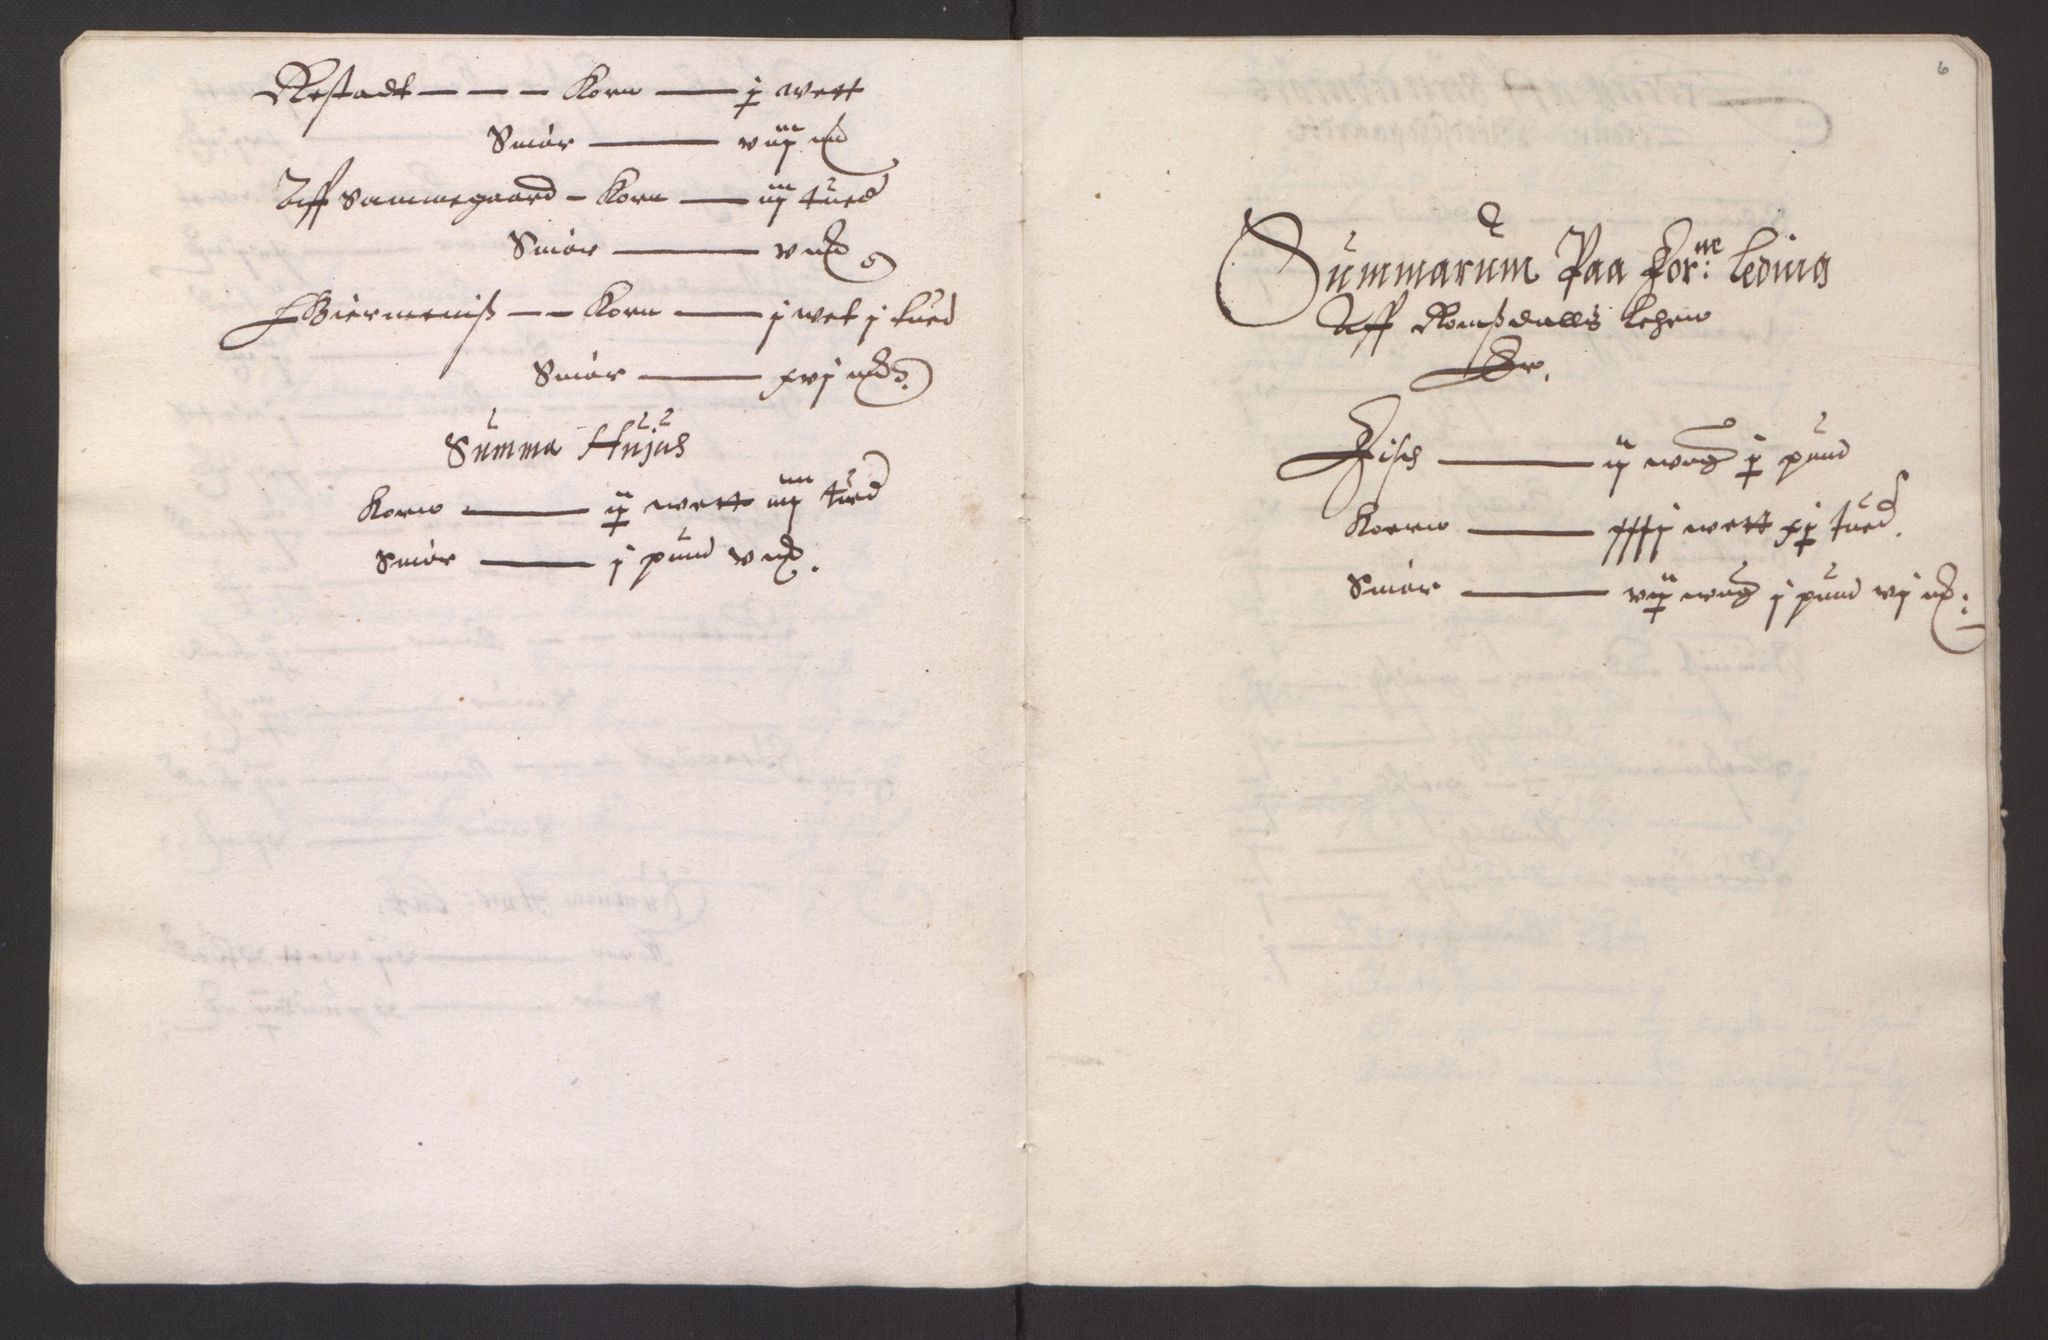 Restadt — — — Korn — j wett
Smör — viij mk
Aff Sammegaard – Korn — iij tued
Smör — v mk
Giermeniß — — Korn — j wet j tued
Smör — xvj mk
Summa Hujus
Korn — ij wett iiij tued
Smör — j pund v mk.
6
Summarum Paa For:ne Leding
Aff Romßdalls Lehen
Er.
Fisch — ij wog j pund
Korrn — xxxxj wett xj tued.
Smör — vij wog j pund vj mk: